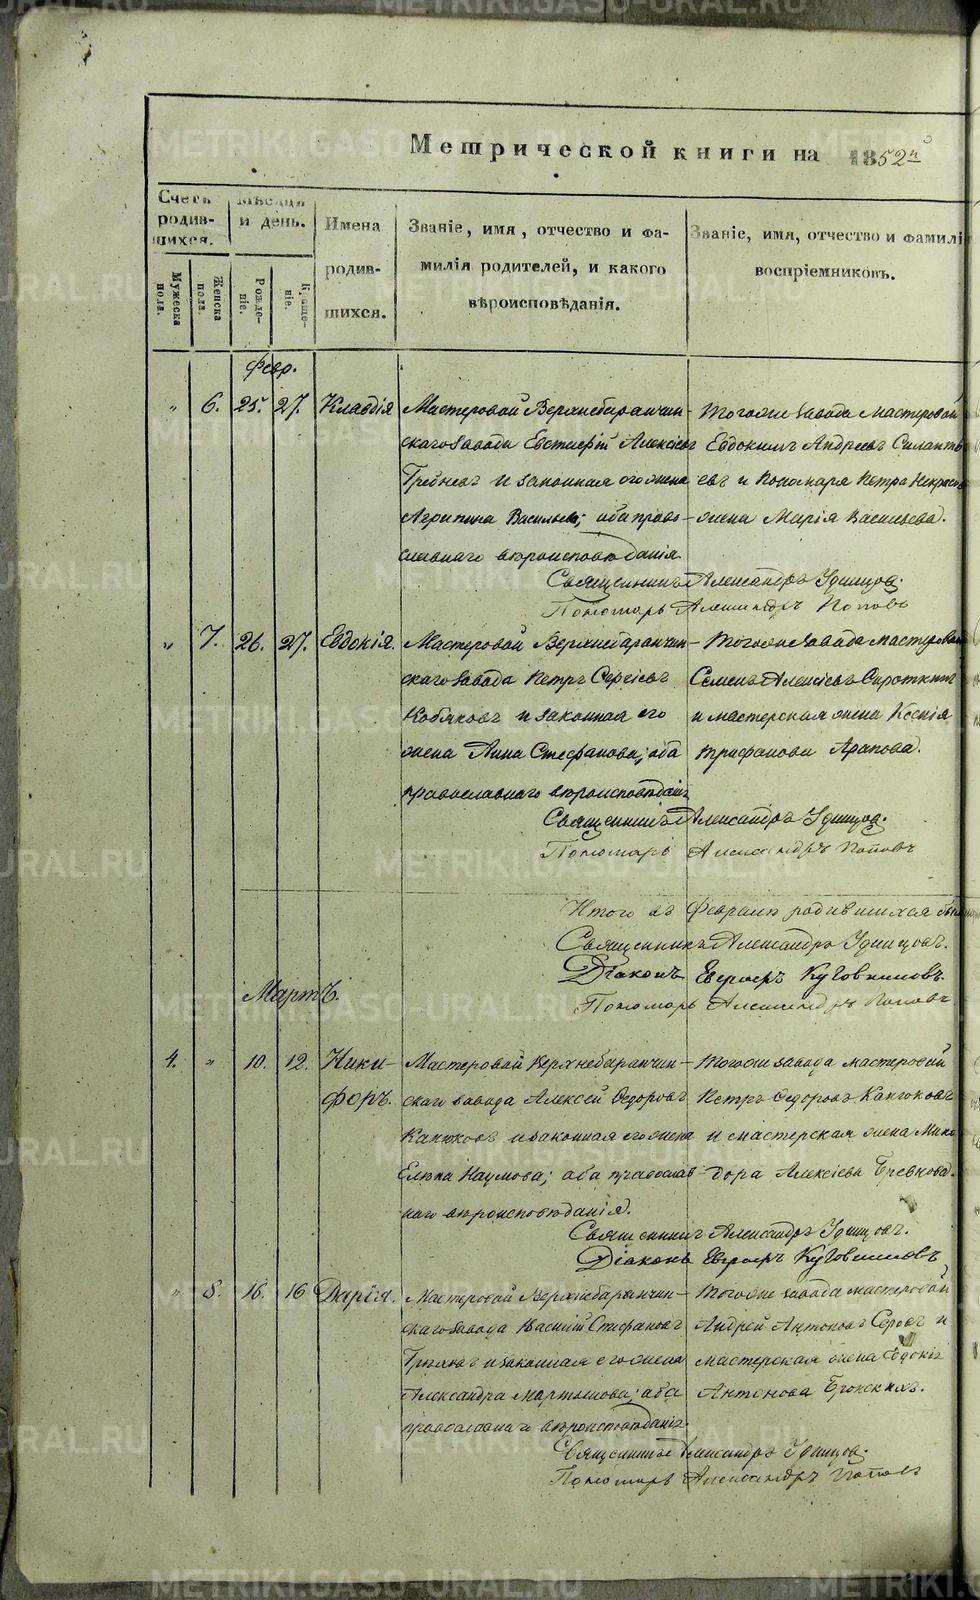 Метрической книги на 1852й
Счетъ родившихся.
Мѣсяцъ и день.
Имена родившихся.
Званіе, имя, отчество и фамилія родителей, и какого вѣроисповѣданія.
Званіе, имя, отчество и фамилі
воспріемниковъ.
Мужеска пола.
Женска пола.
Рожденіе.
Крещеніе.
Февр.
" 6. 25. 27. Клавдія
Мастеровой Верхнебаранчин-
скаго завода Евстафій Алексѣевъ
Гребневъ и законная его жена
Агрипина Васильева; оба право-
славнаго вѣроисповѣданія.
Тогоже завода мастеровой
Евдокимъ Андреевъ Силанть
евъ и Пономаря Петра Некрасов
жена Марія Васильева.
Священникъ Александръ Удинцов.
Пономарь Александръ Поповъ
" 7. 26. 27. Евдокія.
Мастеровой Верхнебаранчин-
скаго завода Петръ Сергѣевъ
Кобяковъ и законная его
жена Анна Стефанова; оба
православнаго вѣроисповѣданія
Тогоже завода мастеровой
Семенъ Алексѣевъ Сироткинъ
и мастерская жена Ксенія
Трифанова Арапова.
Священникъ Александръ Удинцов.
Пономарь Александръ Поповъ
Итого въ Февралѣ родившихся
Священникъ Александръ Удинцовъ.
Діаконъ
Пономарь Александръ Поповъ
Мартъ.
4. " 10. 12. Ники-
форъ.
Мастеровой Верхнебаранчин-
скаго завода Алексѣй Федоровъ
Канюковъ и законная его жена
Елена Наумова; оба православ-
наго вѣроисповѣданія.
Тогоже завода мастеровой
Петръ Федоровъ Канюковъ
и мастерская жена Мино
дора Алексѣева Бревнова.
Священникъ Александръ Удинцовъ.
Діаконъ
" 8. 16. 16 Дарія.
Мастеровой Верхнебаранчин-
скаго завода Василій Стефановъ
и законная его жена
Александра Мартынова; оба
православнаго вѣроисповѣданія.
Тогоже завода мастеровой
Андрей Антоновъ Серовъ и
мастерская жена Евдокія
Антонова Бронскихъ.
Священникъ Александръ Удинцов.
Пономарь Александръ Поповъ
METRIKI.GASO-URAL.RU